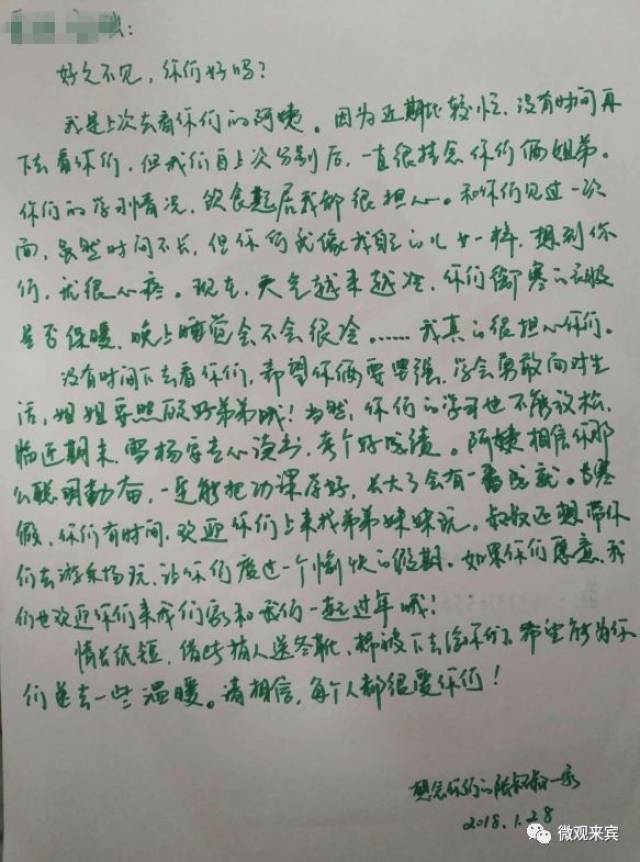 好久不见，你们好吗？
我是上次去看你们的阿姨。因为近期比较忙，没有时间再
下去看你们，但我们自上次分别后，一直很挂念你们俩姐弟。
你们的学习情况，饮食起居我都很担心。和你们见过一次
面，虽然时间不长，但你们就像我自己的儿女一样，想到你
们，就很心疼。现在，天气越来越冷，你们御寒的衣服
是否保暖，晚上睡觉会不会很冷。……我真的很担心你们。
没有时间下去看你们，希望你俩要坚强，学会勇敢面对生
活，姐姐要照顾好弟弟哦！当然，你们的学习也不能放松，
临近期末，雪杨要专心读书，考个好成绩。阿姨相信你那
么聪明勤奋，一定能把功课学好，长大了会有一番成就。等寒
假，你们有时间，欢迎你们上来找弟弟妹妹玩。叔叔还想带你
们去游乐场玩，让你们度过一个愉快的假期。如果你们愿意，我
们也欢迎你们来我们家和我们一起过年哦！
情长纸短，借此请人送冬靴、棉被下去给你们，希望能为你
们送去一些温暖。请相信，每个人都很爱你们！
想念你们的陆叔叔一家
2018.1.28
微观来宾